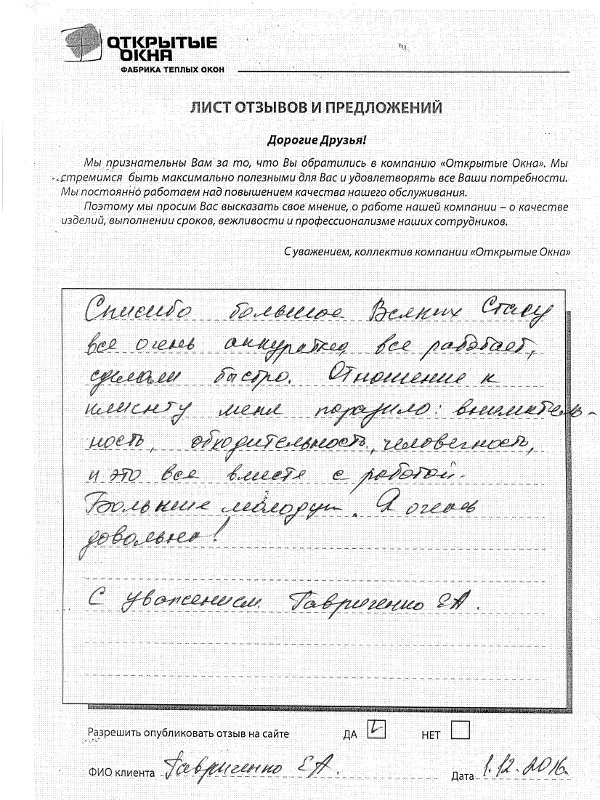 ОТКРЫТЫЕ
ОКНА
ФАБРИКА ТЕПЛЫХ ОКОН
ЛИСТ ОТЗЫВОВ И ПРЕДЛОЖЕНИЙ
Дорогие Друзья!
Мы признательны Вам за то, что Вы обратились в компанию «Открытые Окна». Мы
стремимся быть максимально полезными для Вас и удовлетворять все Ваши потребности.
Мы постоянно работаем над повышением качества нашего обслуживания.
Поэтому мы просим Вас высказать свое мнение, о работе нашей компании – о качестве
изделий, выполнении сроков, вежливости и профессионализме наших сотрудников.
С уважением, коллектив компании «Открытые Окна»
Спасибо большое Стасу
все очень аккуратно, все работает,
сделали быстро. Отношение к
клиенту меня поразило: вниматель-
ность, обходительность, человечность,
и это все вместе с работой.
Большие молодцы. Я очень
довольна!
С уважением Гавриченко ЕА.
Разрешить опубликовать отзыв на сайте ДА НЕТ
ФИО клиента Гавриченко ЕА. Дата 1.12.2016